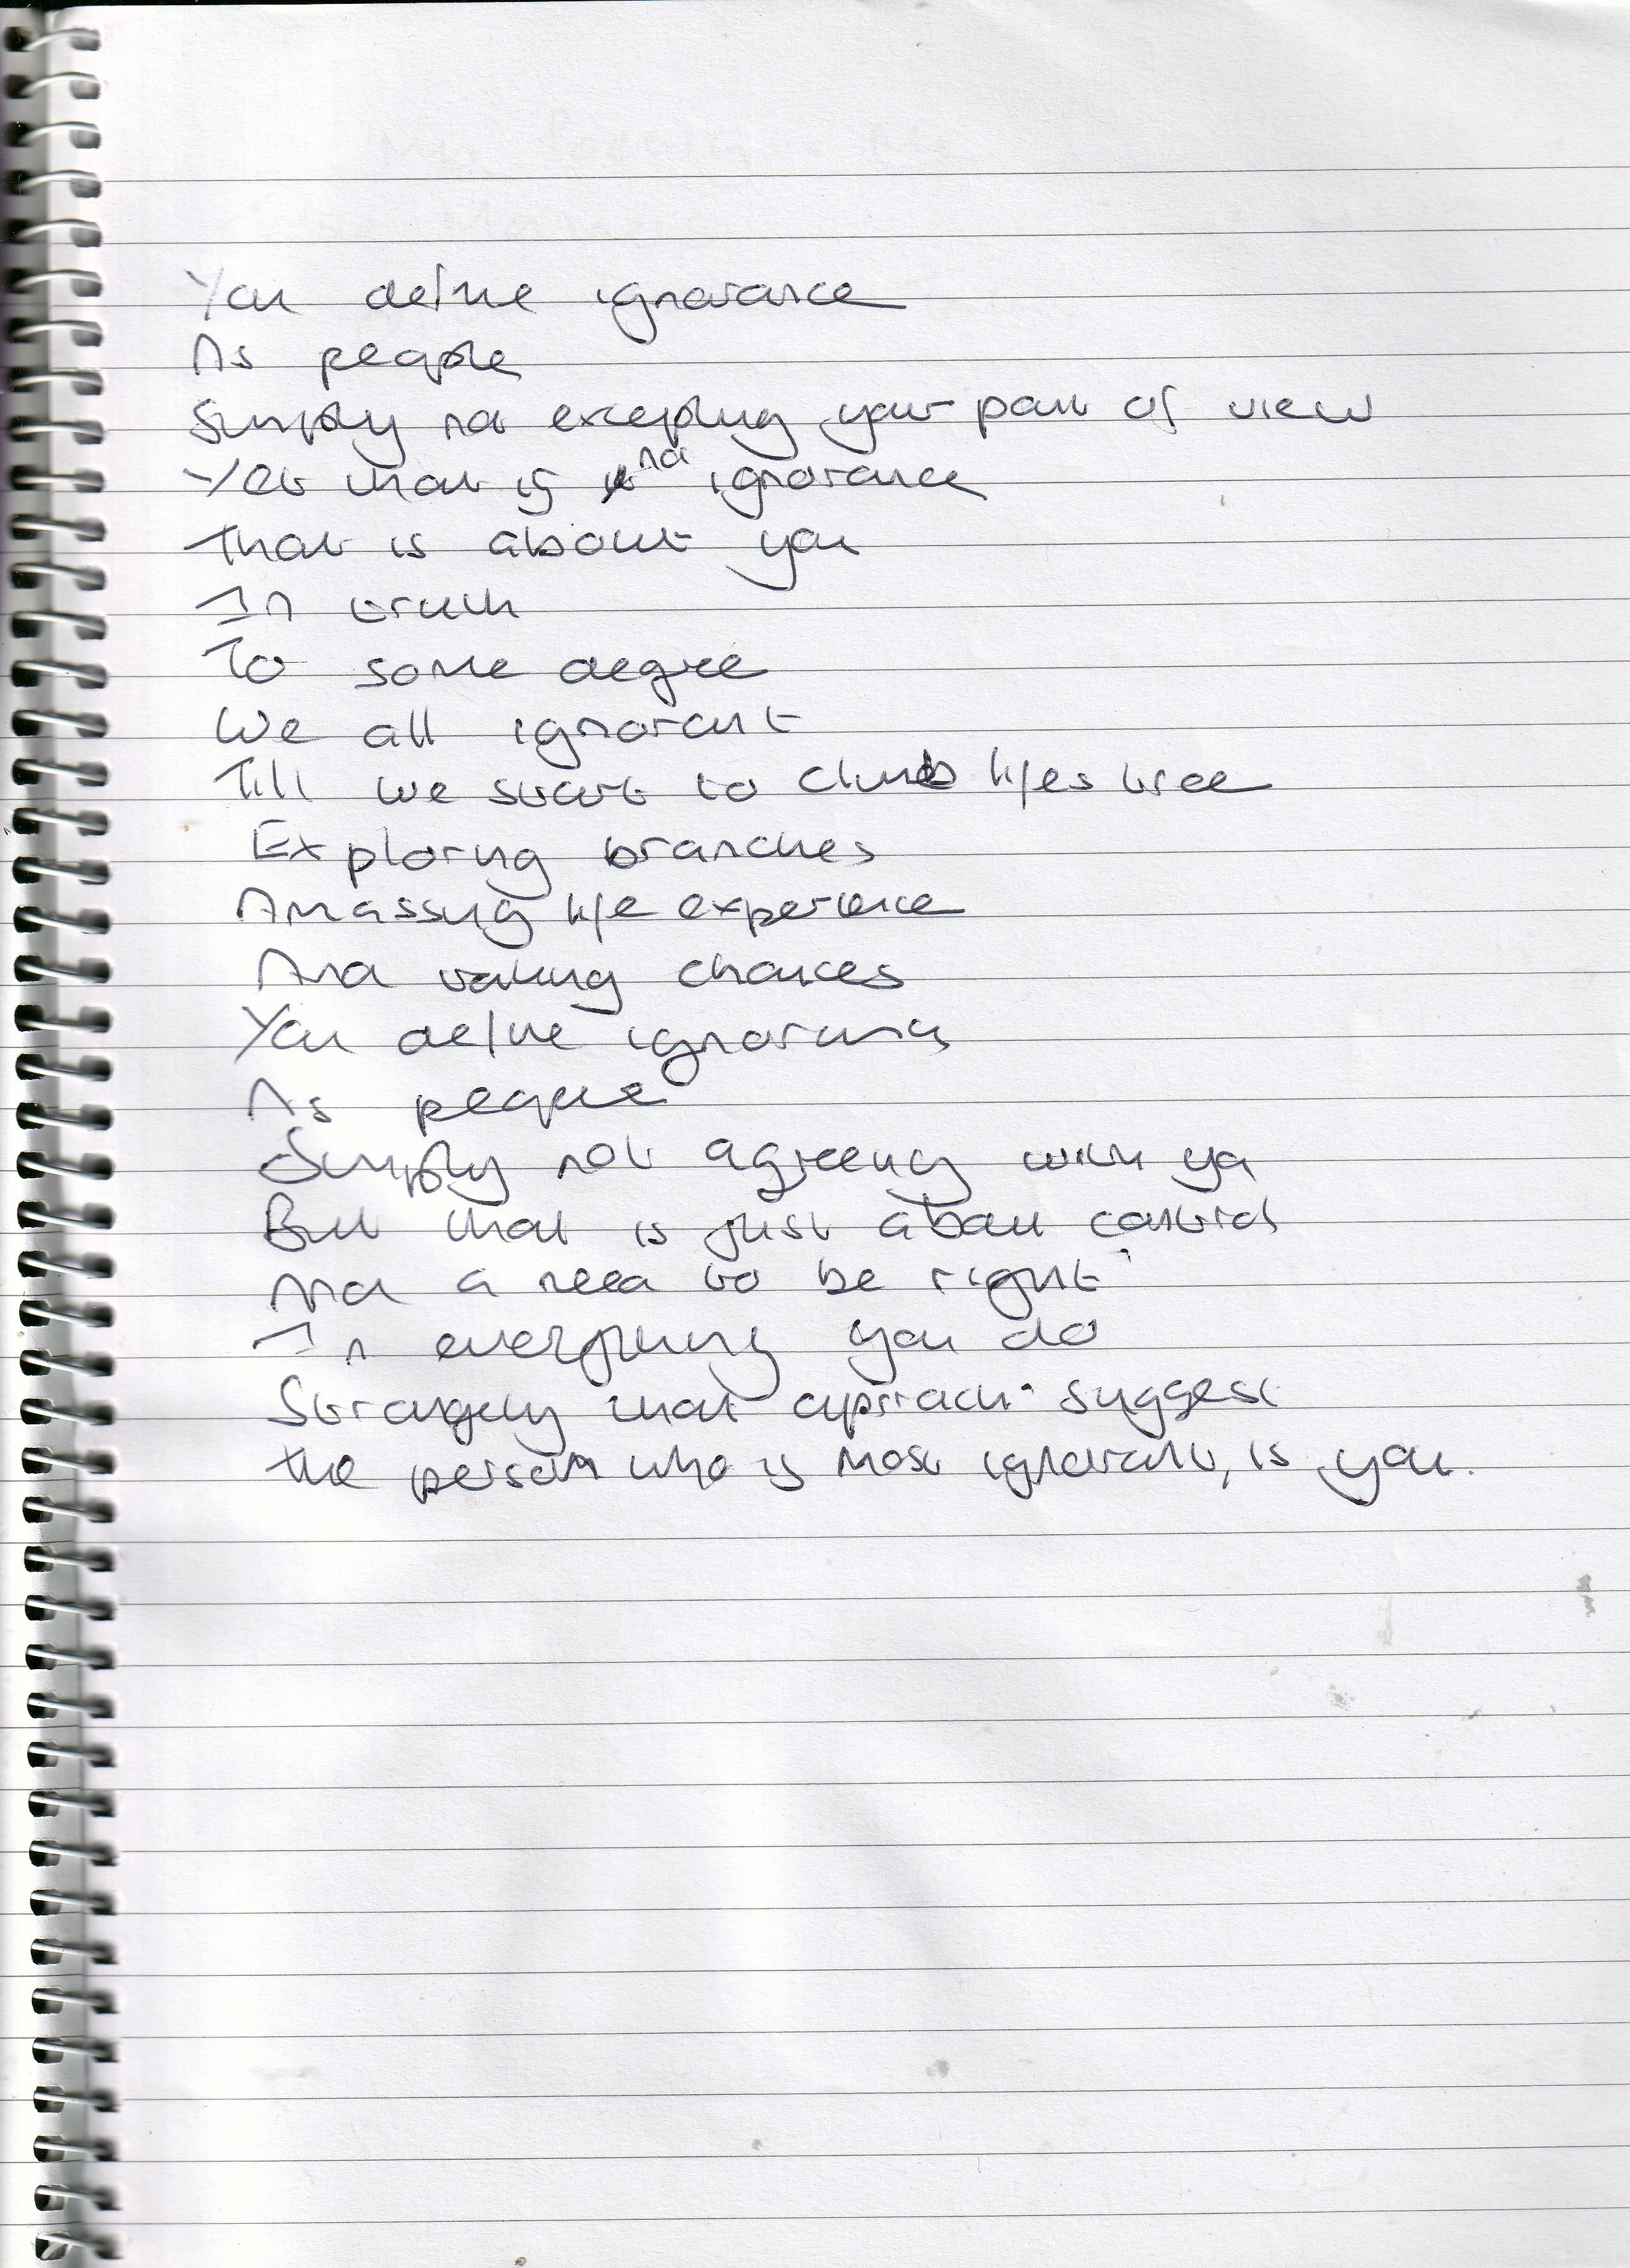 You define ignorance
As people
Simply not excepting your point of view
Yet that is not ignorance
That is about you
In truth
To some degree
We all ignorant
Till we start to climb lifes tree
Exploring branches
Amassing life experience
And taking chances
You define ignorance
As people
Simply not agreeing with ya
But that is just about control
And a need to be right
In everything you do
Strangely that approach suggest
The person who is most ignorant, is you.